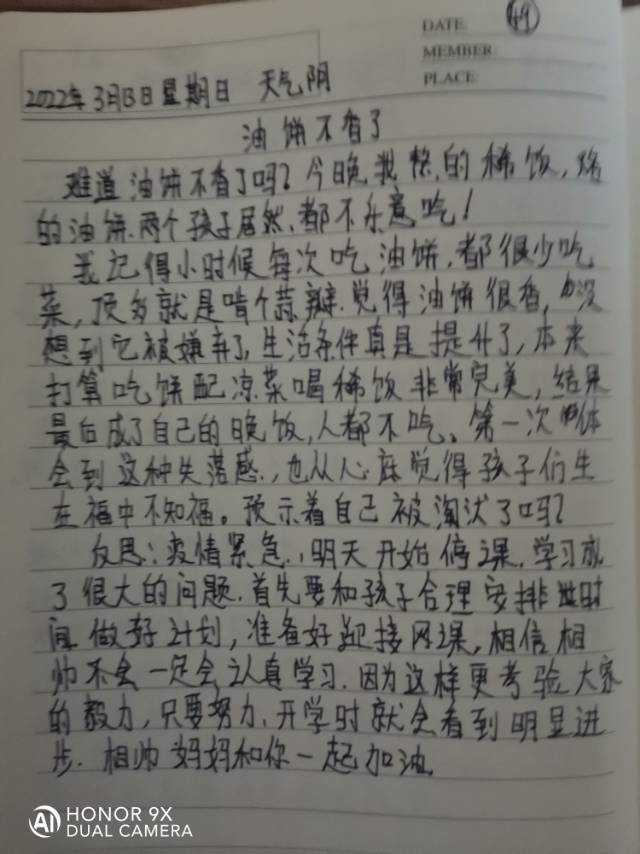 DATE 49
MEMBER
PLACE
2022年3月13日星期日 天气阴
油饼不香了
难道油饼不香了吗？今晚我熬的稀饭，烙
的油饼.两个孩子居然.都不乐意吃！
我记得小时候每次吃油饼，都很少吃
菜，顶多就是啃个蒜瓣.觉得油饼很香，也没
想到它被嫌弃了，生活条件真是提升了，本来
打算吃饼配凉菜喝稀饭非常完美，结果
最后成了自己的晚饭，人都不吃、第一次体
会到这种失落感.，也从心底觉得孩子们生
在福中不知福。预示着自己被淘汰了吗？
反思：疫情紧急.，明天开始停课.学习成
了很大的问题.首先要和孩子合理安排时
间做好计划，准备好迎接网课，相信相
帅不会一定会认真学习.因为这样更考验大家
的毅力，只要努力.开学时就会看到明显进
步.相帅妈妈和你一起加油.
HONOR 9X
DUAL CAMERA